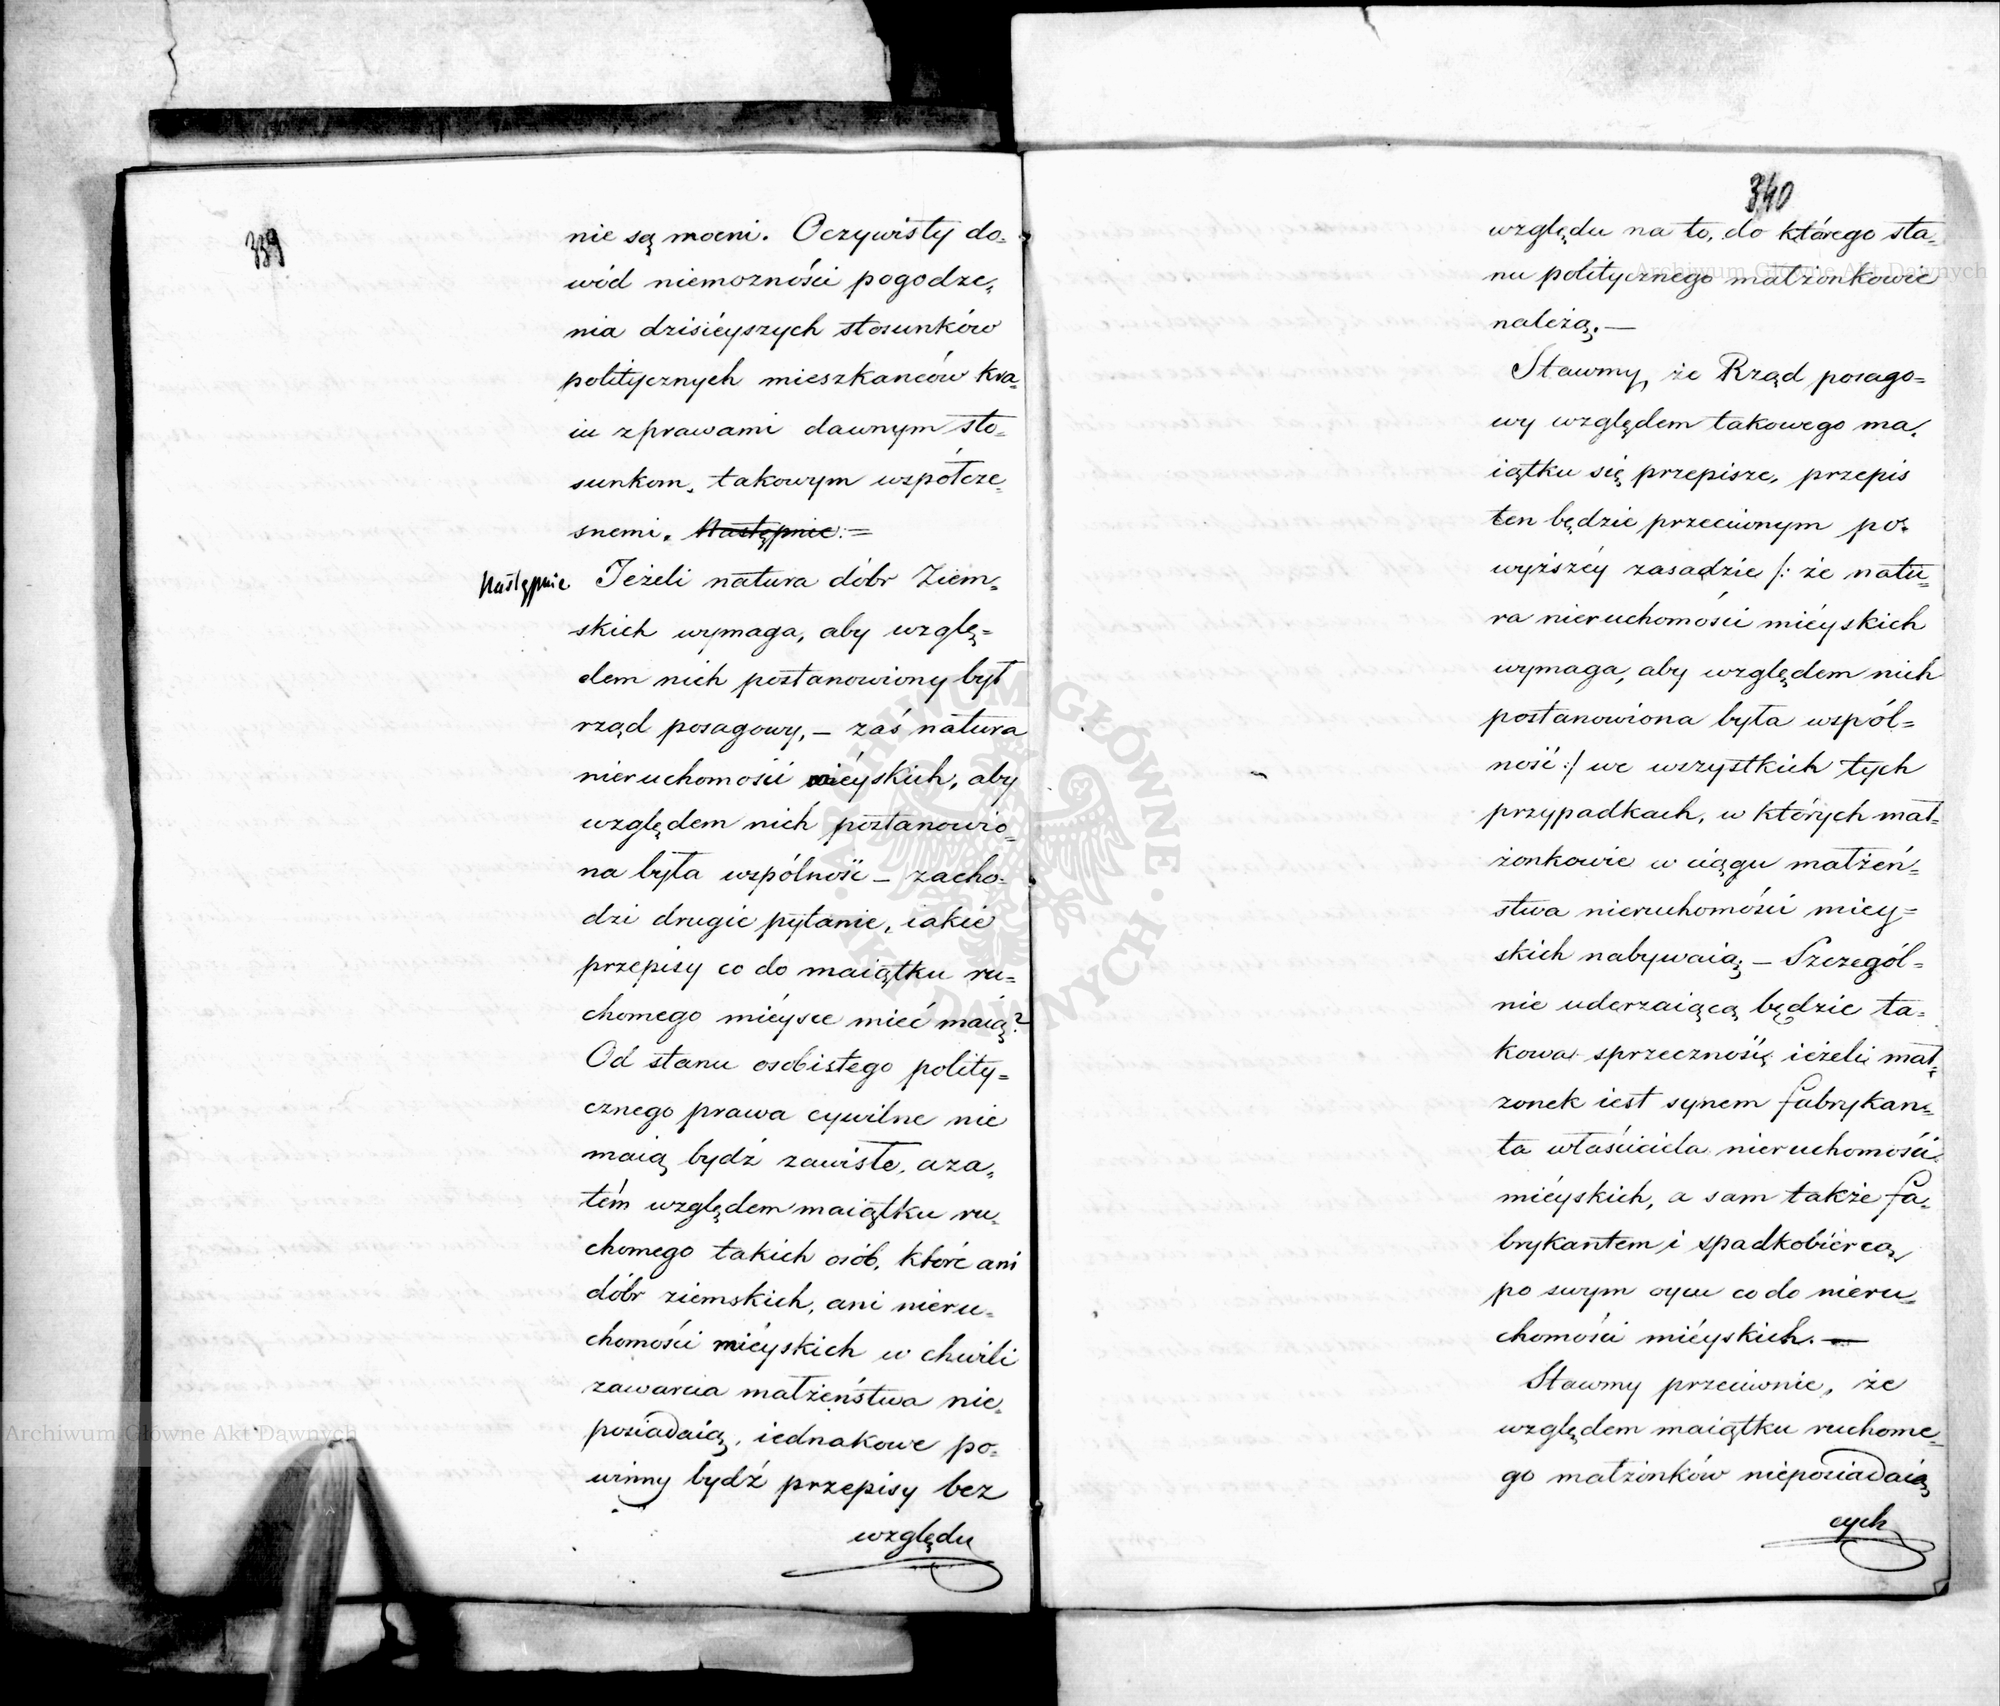 339
nie są mocni. Oczywisty do=
wód niemożności pogodze=
nia dzisiéyszych stosunków
politycznych mieszkańców kra=
iu z prawami dawnym sto=
sunkom, takowym współcze=
snemi. Następnie:=
Następnie Jeżeli natura dóbr Ziem=
skich wymaga, aby wzglę=
dem nich postanowiony był
rząd posagowy, – zaś natura
nieruchomości miéyskich, aby
względem nich postanowio=
na była wspólność – zacho=
dzi drugie pytanie, iakie
przepisy co do maiątku ru=
chomego miéysce mieć maią?
Od stanu osobistego polity=
cznego prawa cywilne nie
maią bydź zawisłe, a za=
tém względem maiątku ru=
chomego takich osób, które ani
dóbr ziemskich, ani nieru=
chomości miéyskich w chwili
zawarcia małżeństwa nie
posiadaią, iednakowe po=
winny bydź przepisy bez
względu
340
względu na to, do którego sta=
nu politycznego małżonkowie
należą. —
Stawmy, że Rząd posago=
wy względem takowego ma=
iątku się przepisze, przepis
ten będzie przeciwnym po=
wyższéy zasadzie /: że natu=
ra nieruchomości miéyskich
wymaga, aby względem nich
postanowiona była wspól=
ność :/ we wszystkich tych
przypadkach, w których mał=
żonkowie w ciągu małżeń=
stwa nieruchomości miey=
skich nabywaią – Szczegól=
nie uderzaiącą będzie ta=
kowa sprzeczność, ieżeli mał=
żonek iest synem fabrykan=
ta właściciela nieruchomości
miéyskich, a sam także fa=
brykantem i spadkobiercą
po swym oycu co do nieru=
chomości miéyskich. —
Stawmy przeciwnie, że
względem maiątku ruchome=
go małżonków nieposiadaią
cych
Archiwum Główne Akt Dawnych
Archiwum Główne Akt Dawnych
ARCHIWUM GŁÓWNE AKT DAWNYCH